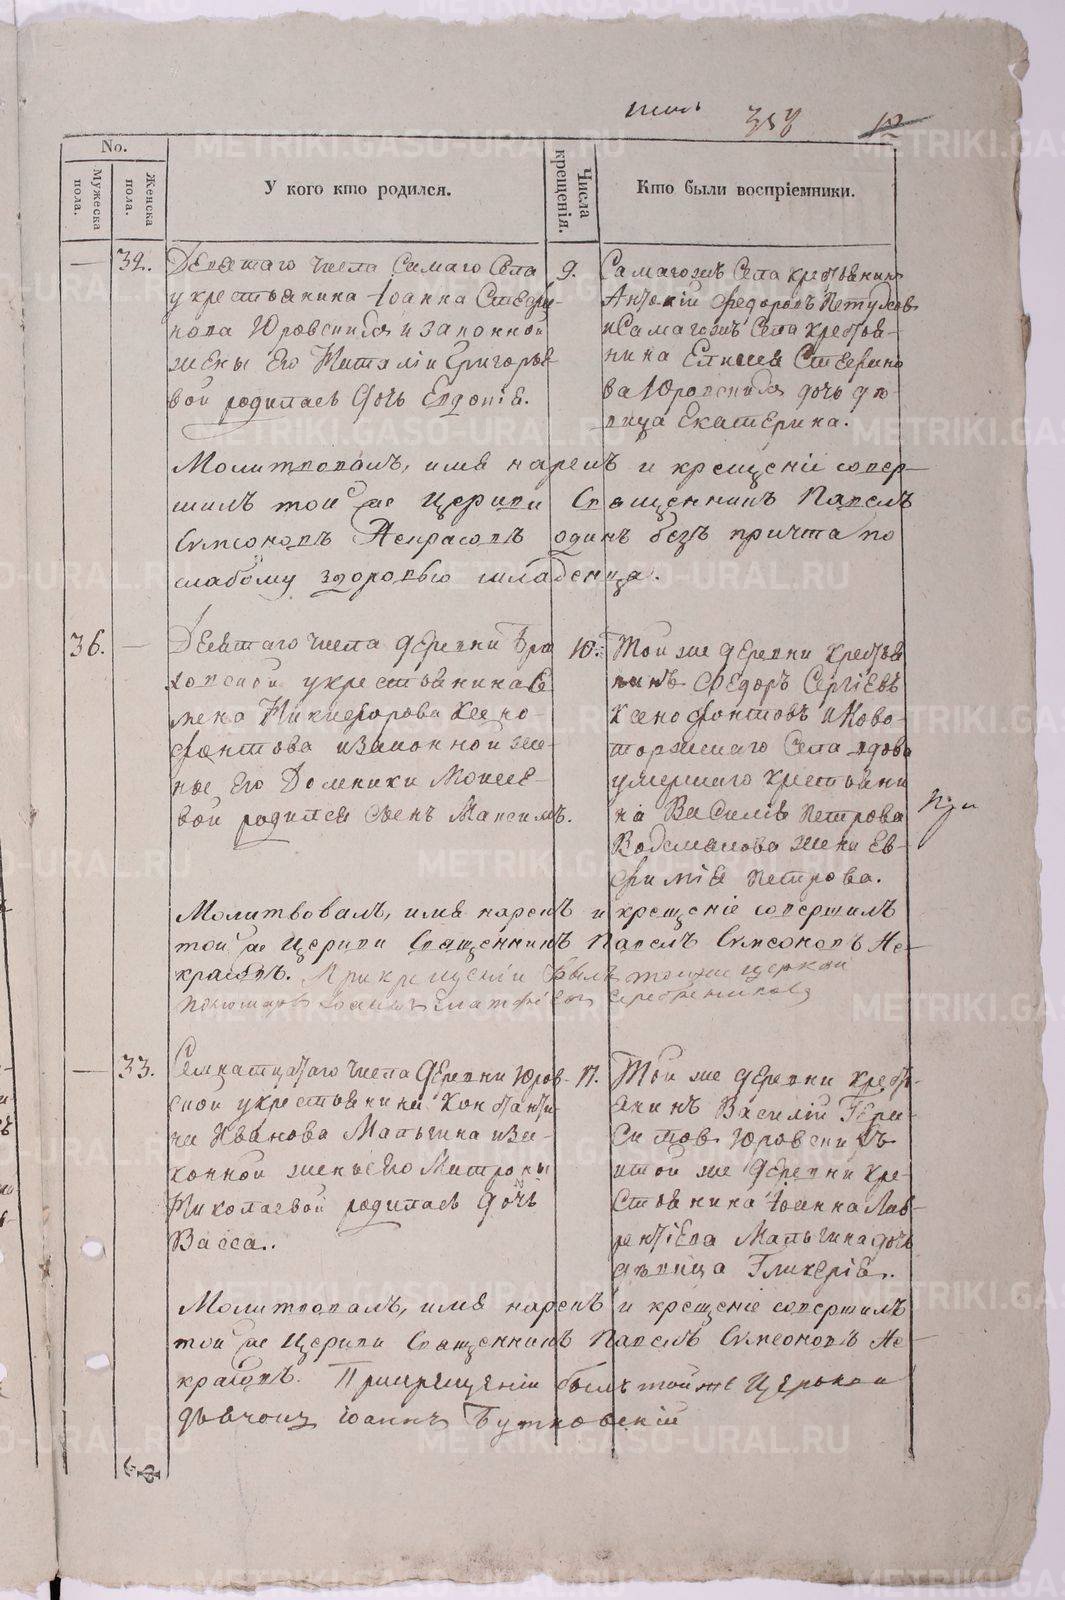 358
No.
Мужеска пола.
Женска пола.
У кого кто родился.
Числа крещенія.
Кто были воспріемники.
— 32.
Деветаго числа Самаго Села
укрестьянина Іоанна Стефа-
нова Юровскихъ изаконной
жены Его Наталіи Григорье
вой родилась дочь Евдокія.
9.
Самагожъ Села крестьянинъ
Антоній Федоровъ Петуховъ
иСамагожъ Села крестья-
нина Елисея Стефано
ва Юровскихъ дочь дѣ-
вица Екатерина.
Молитвовалъ, имя нарекъ и крещеніе совер-
шилъ той же Церкви Священникъ Павелъ
Симеоновъ Некрасовъ одинъ безъ причта по
слабому здоровью младенца.
36. —
Девятаго числа деревни
укрестьянина Се
мена Никифорова Ксено-
фонтова изаконной же-
ны Его Домники Моисее-
вой родился сынъ Максимъ.
10.
Той же деревни крестья
нинъ Федоръ Сергіевъ
Ксенофонтовъ и Ново-
торжскаго Села вдова
умершаго крестьяни
на Василія Петрова
жена Ев-
фимія Петрова.
Молитвовалъ, имя нарекъ и крещеніе совершилъ
той же Церкви Священникъ Павелъ Симеоновъ Не-
красовъ. При крещеніи былъ тойже церкви
пономарь Серебренниковъ
— 33.
Семнатцатаго числа деревни Юров-
ской укрестьянина Константи-
на Иванова Малыгина иза-
конной жены Его Матроны
Николаевой родилась дочь
Васса.
17.
Той же деревни кресть-
янинъ Василій
Юровскихъ
итой же деревни кре-
стьянина Іоанна Лав-
рентіева Малыгина дочь
дѣвица Гликерія.
Молитвовалъ, имя нарекъ и крещеніе совершилъ
той же Церкви Священникъ Павелъ Симеоновъ Не-
красовъ. При крещеніи былъ тойже Церкви
дьячокъ Іоаннъ Бутковскій
METRIKI.GASO-URAL.RU